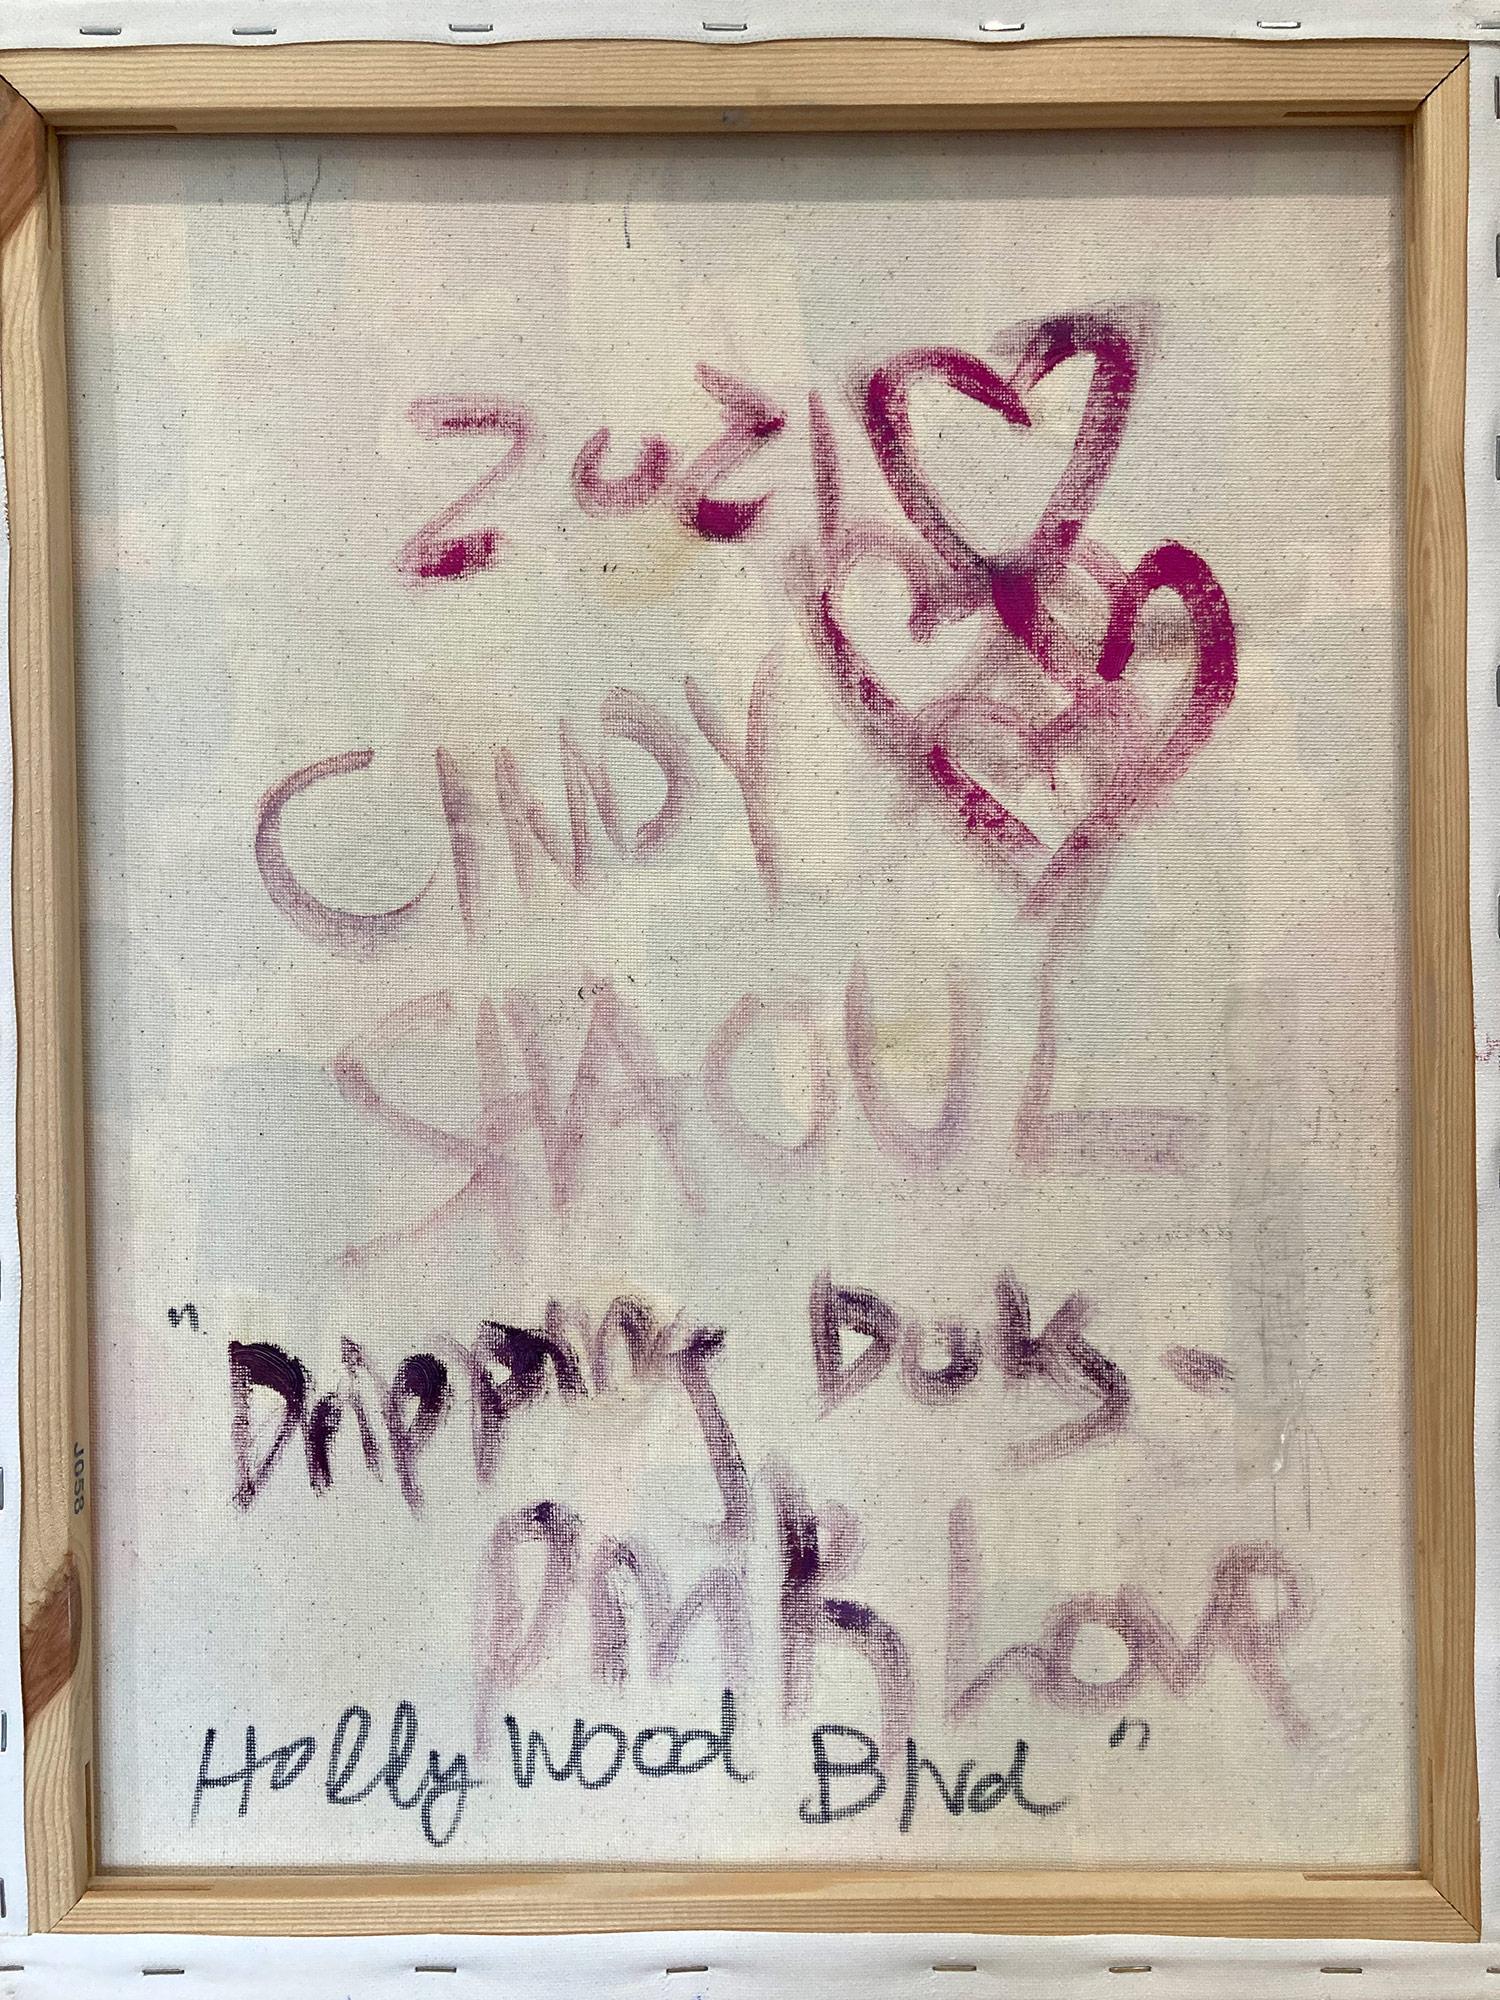 2021
CINDY
SHAOUL
"Dripping Dots -
Pink Love
Hollywood Blvd"
J058